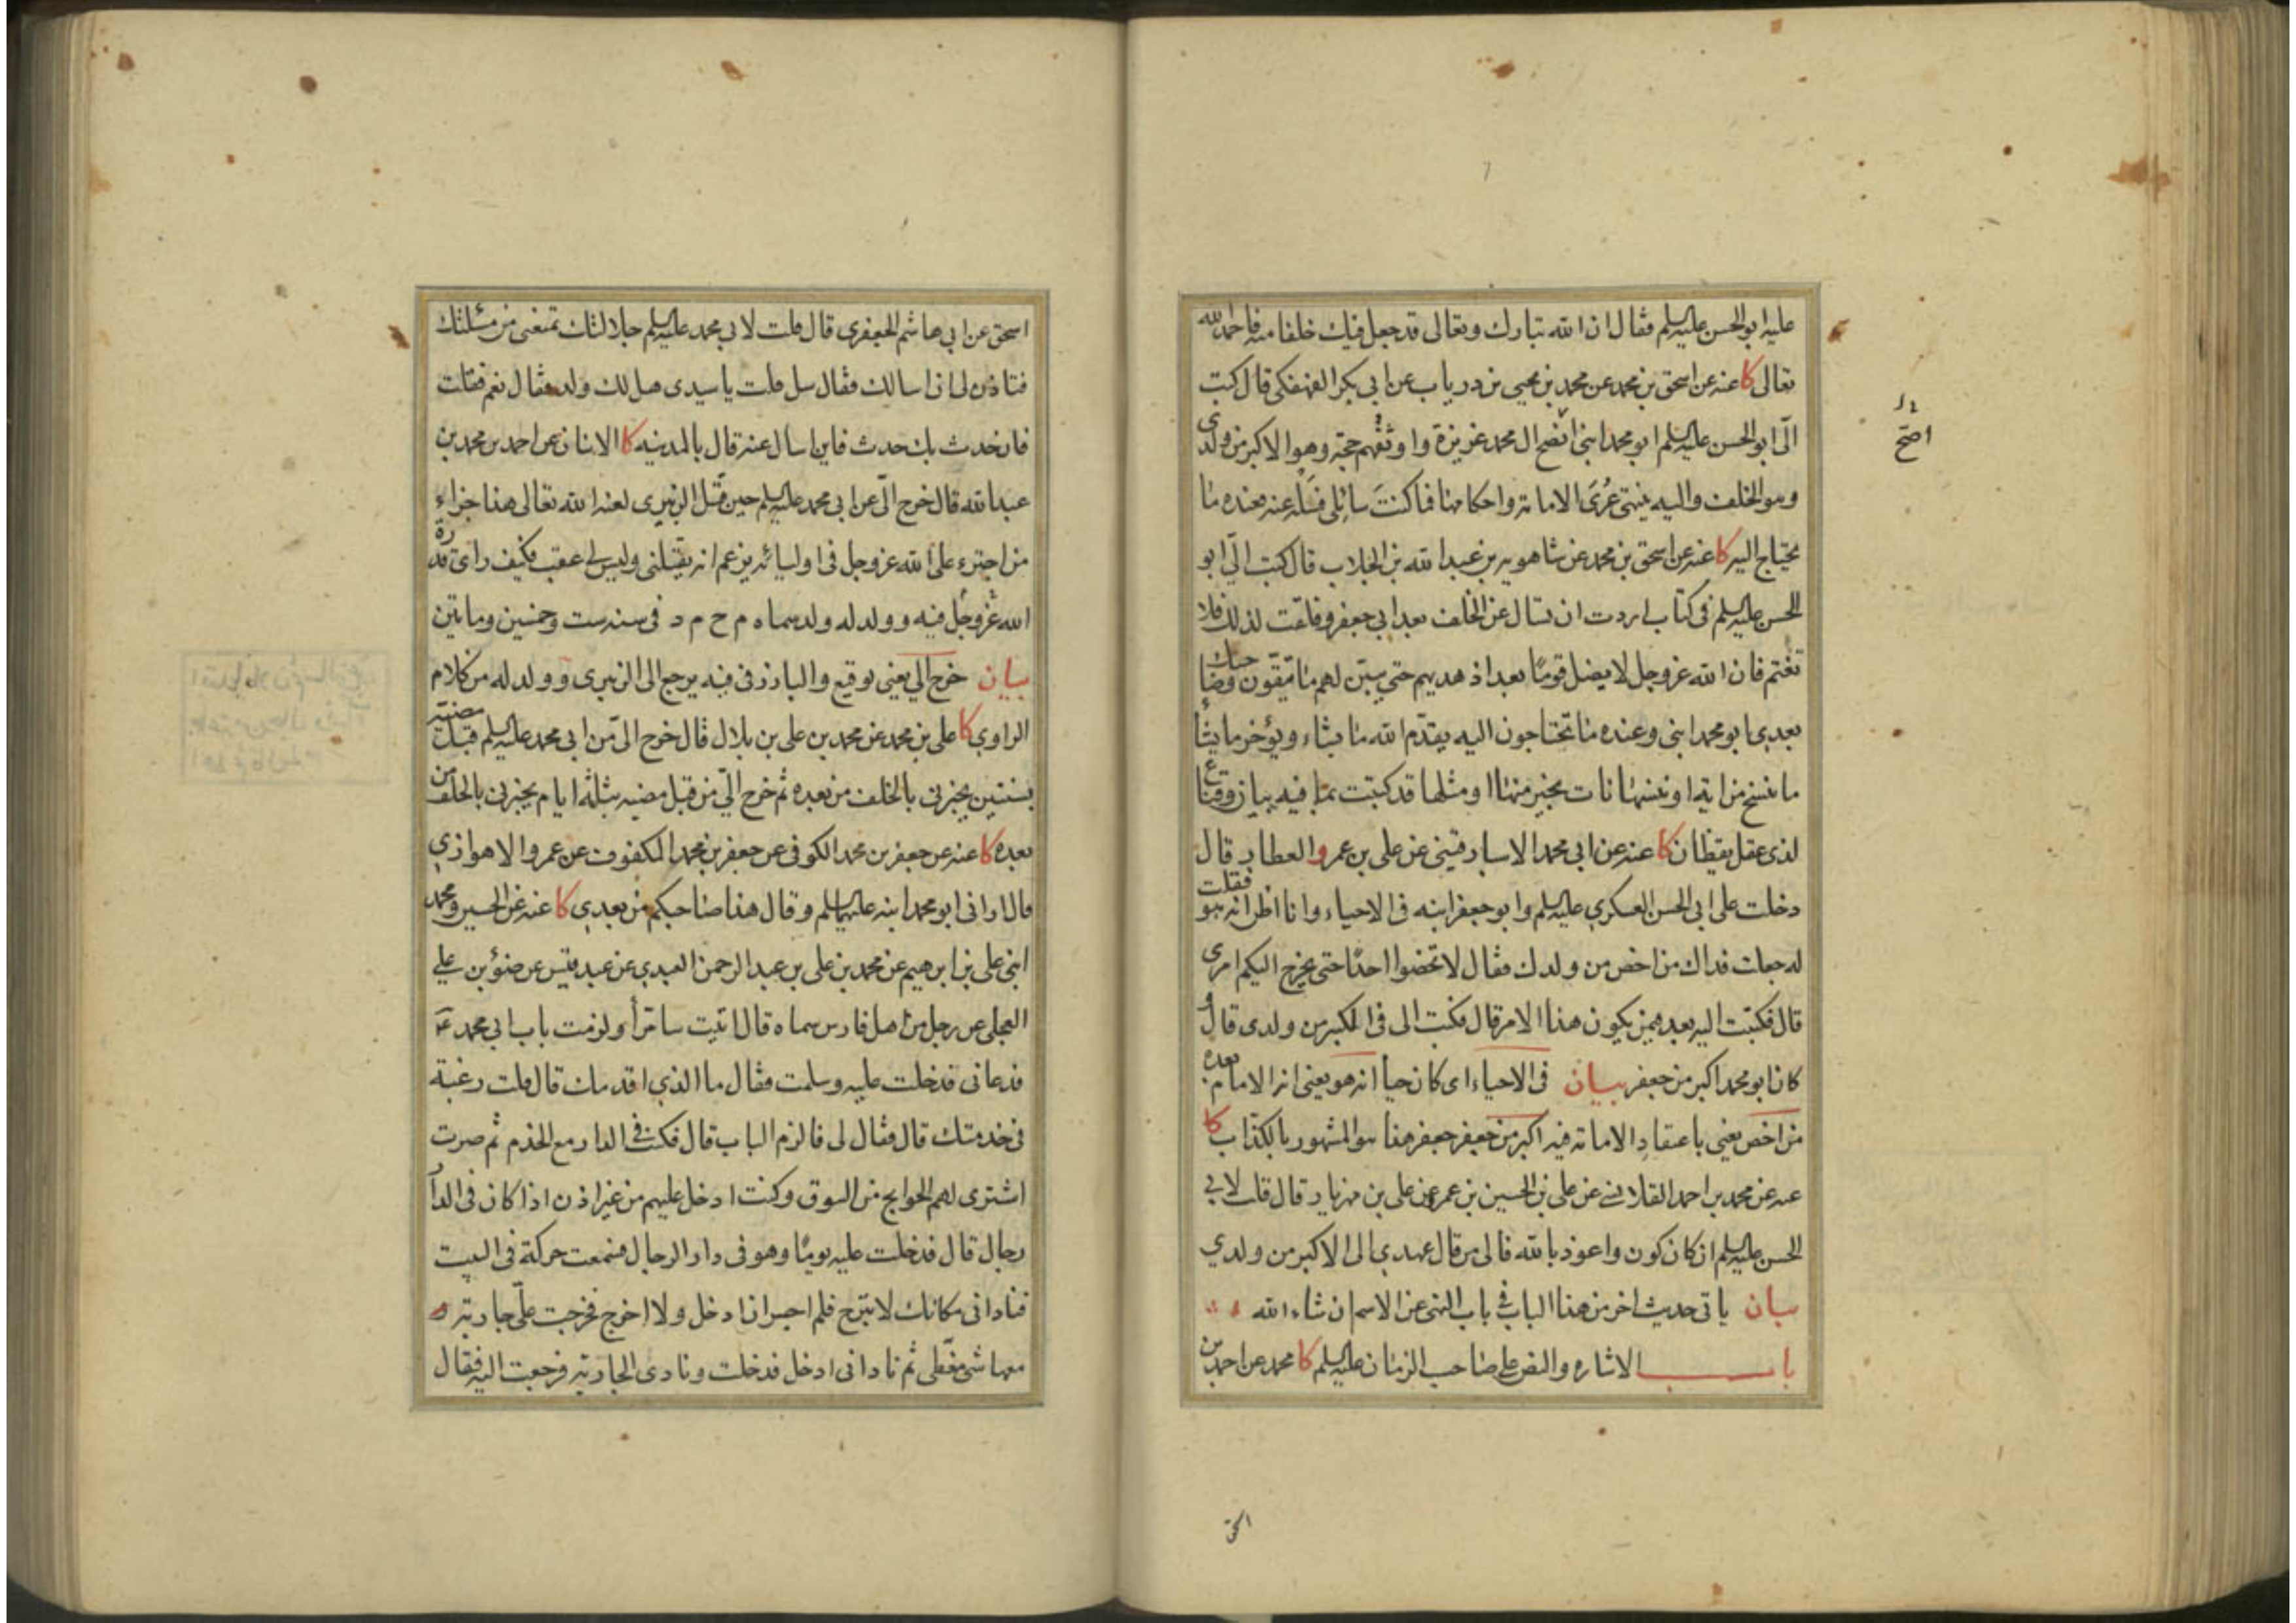 عليه ابو الحسن عليه السلم فقال ان الله تبارك وتعالى قد جعل فيك خلفا منه فاحمد الله
تعالى كا عنه عن اسحق بن محمد عن محمد بن يحيى بن درياب عن ابى بكر الفهفكى قال كتب
الىّ ابو الحسن عليه السلم ابو محمد ابنى انصح ال محمد غريزة واوثقهم حجة وهو الاكبر من ولدى
وهو الخلف واليه ينتهى عُرَى الامامة واحكامها فما كنتَ سائلى فسَله عنه فعنده ما
يحتاج اليه كا عنه عن اسحق بن محمد عن شاهويه بن عبد الله بن الجلاب قال كتب الىّ ابو
الحسن عليه السلم فى كتاب اردت ان تسال عن الخلف بعد ابى جعفر وقلقت لذلك فلا
تغتم فان الله عز وجل لا يضل قومًا بعد اذ هديهم حتى يبيّن لهم ما يتّقون وصاحبك
بعدى ابو محمد ابنى وعنده ما تحتاجون اليه يقدّم الله ما يشاء ويؤخر ما يشاء
ما ننسخ من اية او ننسها نات بخير منها او مثلها قد كتبت بما فيه بيان وقناع
لذى عقل يقظان كا عنه عن ابى محمد الاسبارقينى عن على بن عمرو العطار قال
دخلت على ابى الحسن العسكرى عليه السلم وابو جعفر ابنه فى الاحياء وانا اظن انه هو فقلت
له جعلت فداك من اخص من ولدك فقال لا تخصوا احدًا حتى يخرج اليكم امرى
قال فكتبت اليه بعد فيمن يكون هذا الامر قال فكتب الى فى الكبير من ولدى قال و
كان ابو محمد اكبر من جعفر بيان فى الاحياء اى كان حيا انه هو يعنى انه الامام بعده
من اخص يعنى باعتقاد الامامة فيه اكبر من جعفر جعفر هذا هو المشهور بالكذاب كا
عنه عن محمد بن احمد القلانسى عن على بن الحسين بن عمرو عن على بن مهزيار قال قلت لابى
الحسن عليه السلم ان كان كون واعوذ بالله فالى من قال عهدى الى الاكبر من ولدى
بيان ياتى حديث اخر من هذا الباب فى باب النهى عن الاسم ان شاء الله
باب الاشاره والنص على صاحب الزمان عليه السلم كا محمد عن احمد بن
اصحّ
اسحق
اسحق عن ابى هاشم الجعفرى قال قلت لابى محمد عليه السلم جلالتك تمنعنى من مسئلتك
فتاذن لى ان اسالك فقال سل قلت يا سيدى هل لك ولد فقال نعم فقلت
فان حدث بك حدث فاين اسال عنه قال بالمدينه كا الاثنان عن احمد بن محمد بن
عبد الله قال خرج الىّ عن ابى محمد عليه السلم حين قتل الزبيرى لعنه الله تعالى هذا جزاء
من اجترء على الله عز وجل فى اوليائه يزعم انه يقتلنى وليس لى عقب فكيف راى قدرة
الله عز وجل فيه وولد له ولد سماه م ح م د فى سنه ست وخمسين ومائتين
بيان خرج الى يعنى توقيع والبارز فى فيه يرجع الى الزبيرى وولد له من كلام
الراوى كا على بن محمد عن محمد بن على بن بلال قال خرج الىّ من ابى محمد عليه السلم قبل مضيّه
بسنتين يخبرنى بالخلف من بعده ثم خرج الىّ من قبل مضيه بثلثه ايام يخبرنى بالخلف من
بعده كا عنه عن جعفر بن محمد الكوفى عن جعفر بن محمد المكفوف عن عمرو الاهوازى
قال ارانى ابو محمد ابنه عليهما السلم وقال هذا صاحبكم من بعدى كا عنه عن الحسين ومحمد
ابنى على بن ابرهيم عن محمد بن على بن عبد الرحمن العبدى عن عبد قيس عن ضوء بن على
العجلى عن رجل من اهل فارس سماه قال اتيت سامرأ ولزمت باب ابى محمد ع
فدعانى فدخلت عليه وسلمت فقال ما الذى اقدمك قال قلت رغبة
فى خدمتك قال فقال لى فالزم الباب قال فكنت فى الدار مع الخدم ثم صرت
اشترى لهم الحوايج من السوق وكنت ادخل عليهم من غير اذن اذا كان فى الدار
رجال قال فدخلت عليه يومًا وهو فى دار الرجال فسمعت حركة فى البيت
فنادانى مكانك لا تبرح فلم اجسر ان ادخل ولا اخرج فخرجت علىّ جارية
معها شئ مغطّى ثم نادانى ادخل فدخلت ونادى الجارية فرجعت اليه فقال